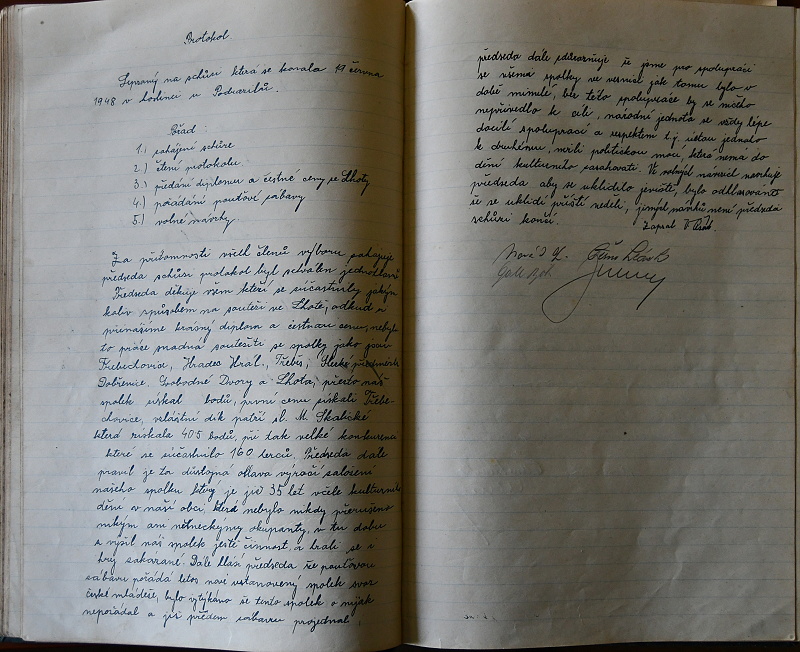 Protokol.
Sepsaný na schůzi která se konala 19 června
1948 v hostinci u Podrazilů.
Pořad:
1.) zahájení schůze
2.) čtení protokolu
3.) předání diplomu a čestné ceny ze Lhoty
4.) pořádání pouťové zábavy
5.) volné návrhy.
Za přítomnosti všech členů výboru zahajuje
předseda schůzi protokol byl schválen jednohlasně
Předseda děkuje všem kteří se súčastnily jakým
koliv způsobem na soutěži ve Lhotě, odkud si
přinášíme krásný diplom a čestnou cenu, nebyla
to práce snadná soutěžiti se spolky jako jsou
Třebechovice, Hradec Král., Třebeš, Slezské předměstí
Dobřenice, Svobodné Dvory a Lhota, přesto náš
spolek získal bodů, první cenu získali Třebe-
chovice, zvláštní dík patří sl. M. Skalické
která získala 405 bodů, při tak velké konkurenci
které se súčastnilo 160 herců. Předseda dále
pravil je to důstojná oslava výročí založení
našeho spolku který je již 35 let v čele kulturního
dění v naší obci, která nebylo nikdy přerušeno
nikým ani německými okupanty, v tu dobu
zvýšil náš spolek ještě činnost, a hráli se i
hry zakázané. Dále hlásí předseda že pouťovou
zábavu pořádá letos nově ustanovený spolek svaz
české mládeže, bylo vytýkáno že tento spolek o nijak
nepořádal a již předem zábavu projednal,
předseda dále zdůrazňuje že jsme pro spolupráci
se všema spolky ve vesnici jak tomu bylo v
době minulé, bez této spolupráce by se ničeho
nepřivedlo k cíli, národní jednota se vždy lépe
docílí spoluprací a respektem t.j. úctou jednoho
k druhému, nežli politickou mocí, která nemá do
dění kulturního zasahovati. Ve volných návrzích navrhuje
předseda aby se uklidilo jeviště, bylo odhlasováno
že se uklidí příští neděli, jiných návrhů není předseda
schůzi končí. Zapsal V. Psák.
Novák J.